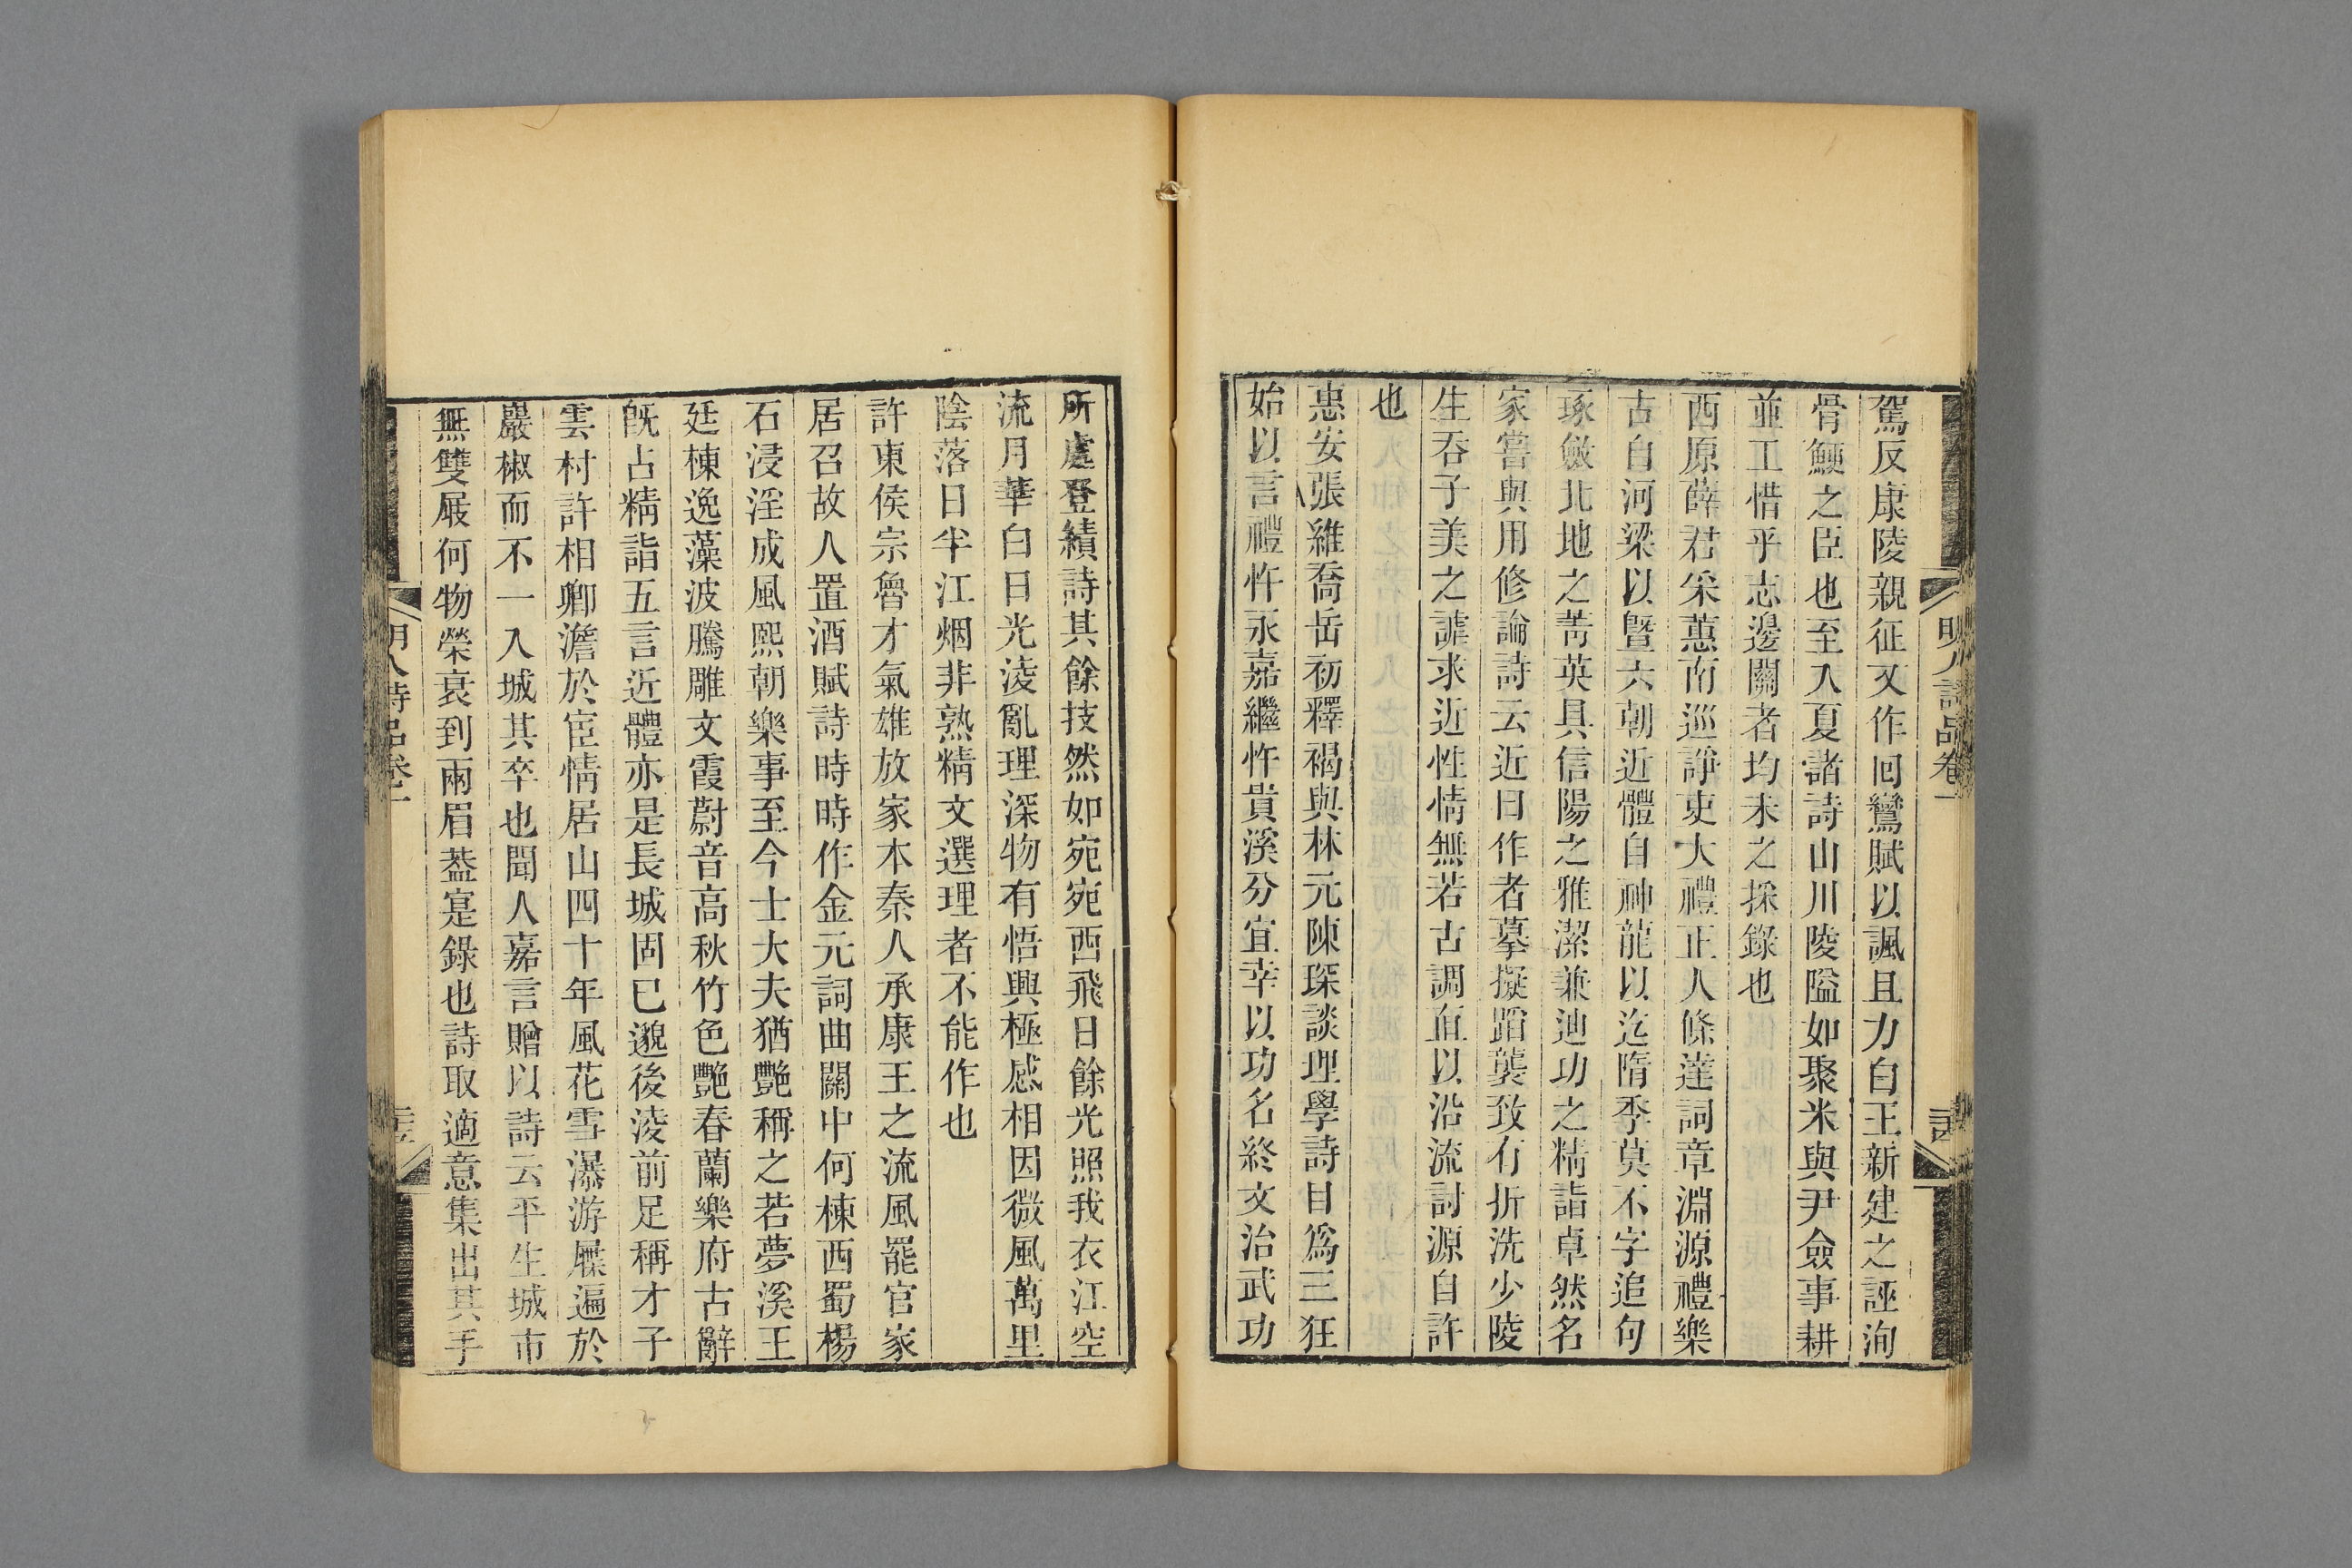 駕反康陵親征又作回鸞賦以諷且力白王新建之誣洵
骨鯁之臣也至入夏諸詩山川陵隘如聚米與尹僉事耕
並工惜乎志邊關者均未之採錄也
西原薛君采蕙南巡諍吏大禮正人條達詞章淵源禮樂
古自河梁以曁六朝近體自神龍以迄隋季莫不字追句
琢斂北地之菁英具信陽之雅潔兼迪功之精詣卓然名
家嘗與用修論詩云近日作者摹擬蹈襲致有折洗少陵
生吞子美之謔求近性情無若古調直以沿流討源自許
也
惠安張維喬岳初釋褐與林元陳琛談理學詩目爲三狂
始以言禮忤永嘉繼忤貴溪分宜幸以功名終文治武功
明人詩品卷一
所處登績詩其餘技然如宛宛西飛日餘光照我衣江空
流月華白日光淩亂理深物有悟興極感相因微風萬里
陰落日半江烟非熟精文選理者不能作也
許東侯宗魯才氣雄放家本秦人承康王之流風罷官家
居召故人置酒賦詩時時作金元詞曲關中何棟西蜀楊
石浸淫成風熙朝樂事至今士大夫猶艷稱之若夢溪王
廷棟逸藻波騰雕文霞蔚音高秋竹色艷春蘭樂府古辭
旣占精詣五言近體亦是長城固已邈後淩前足稱才子
雲村許相卿澹於宦情居山四十年風花雪瀑游屧遍於
巖椒而不一入城其卒也聞人嘉言贈以詩云平生城市
無雙屐何物榮衰到兩眉葢寔錄也詩取適意集出其手